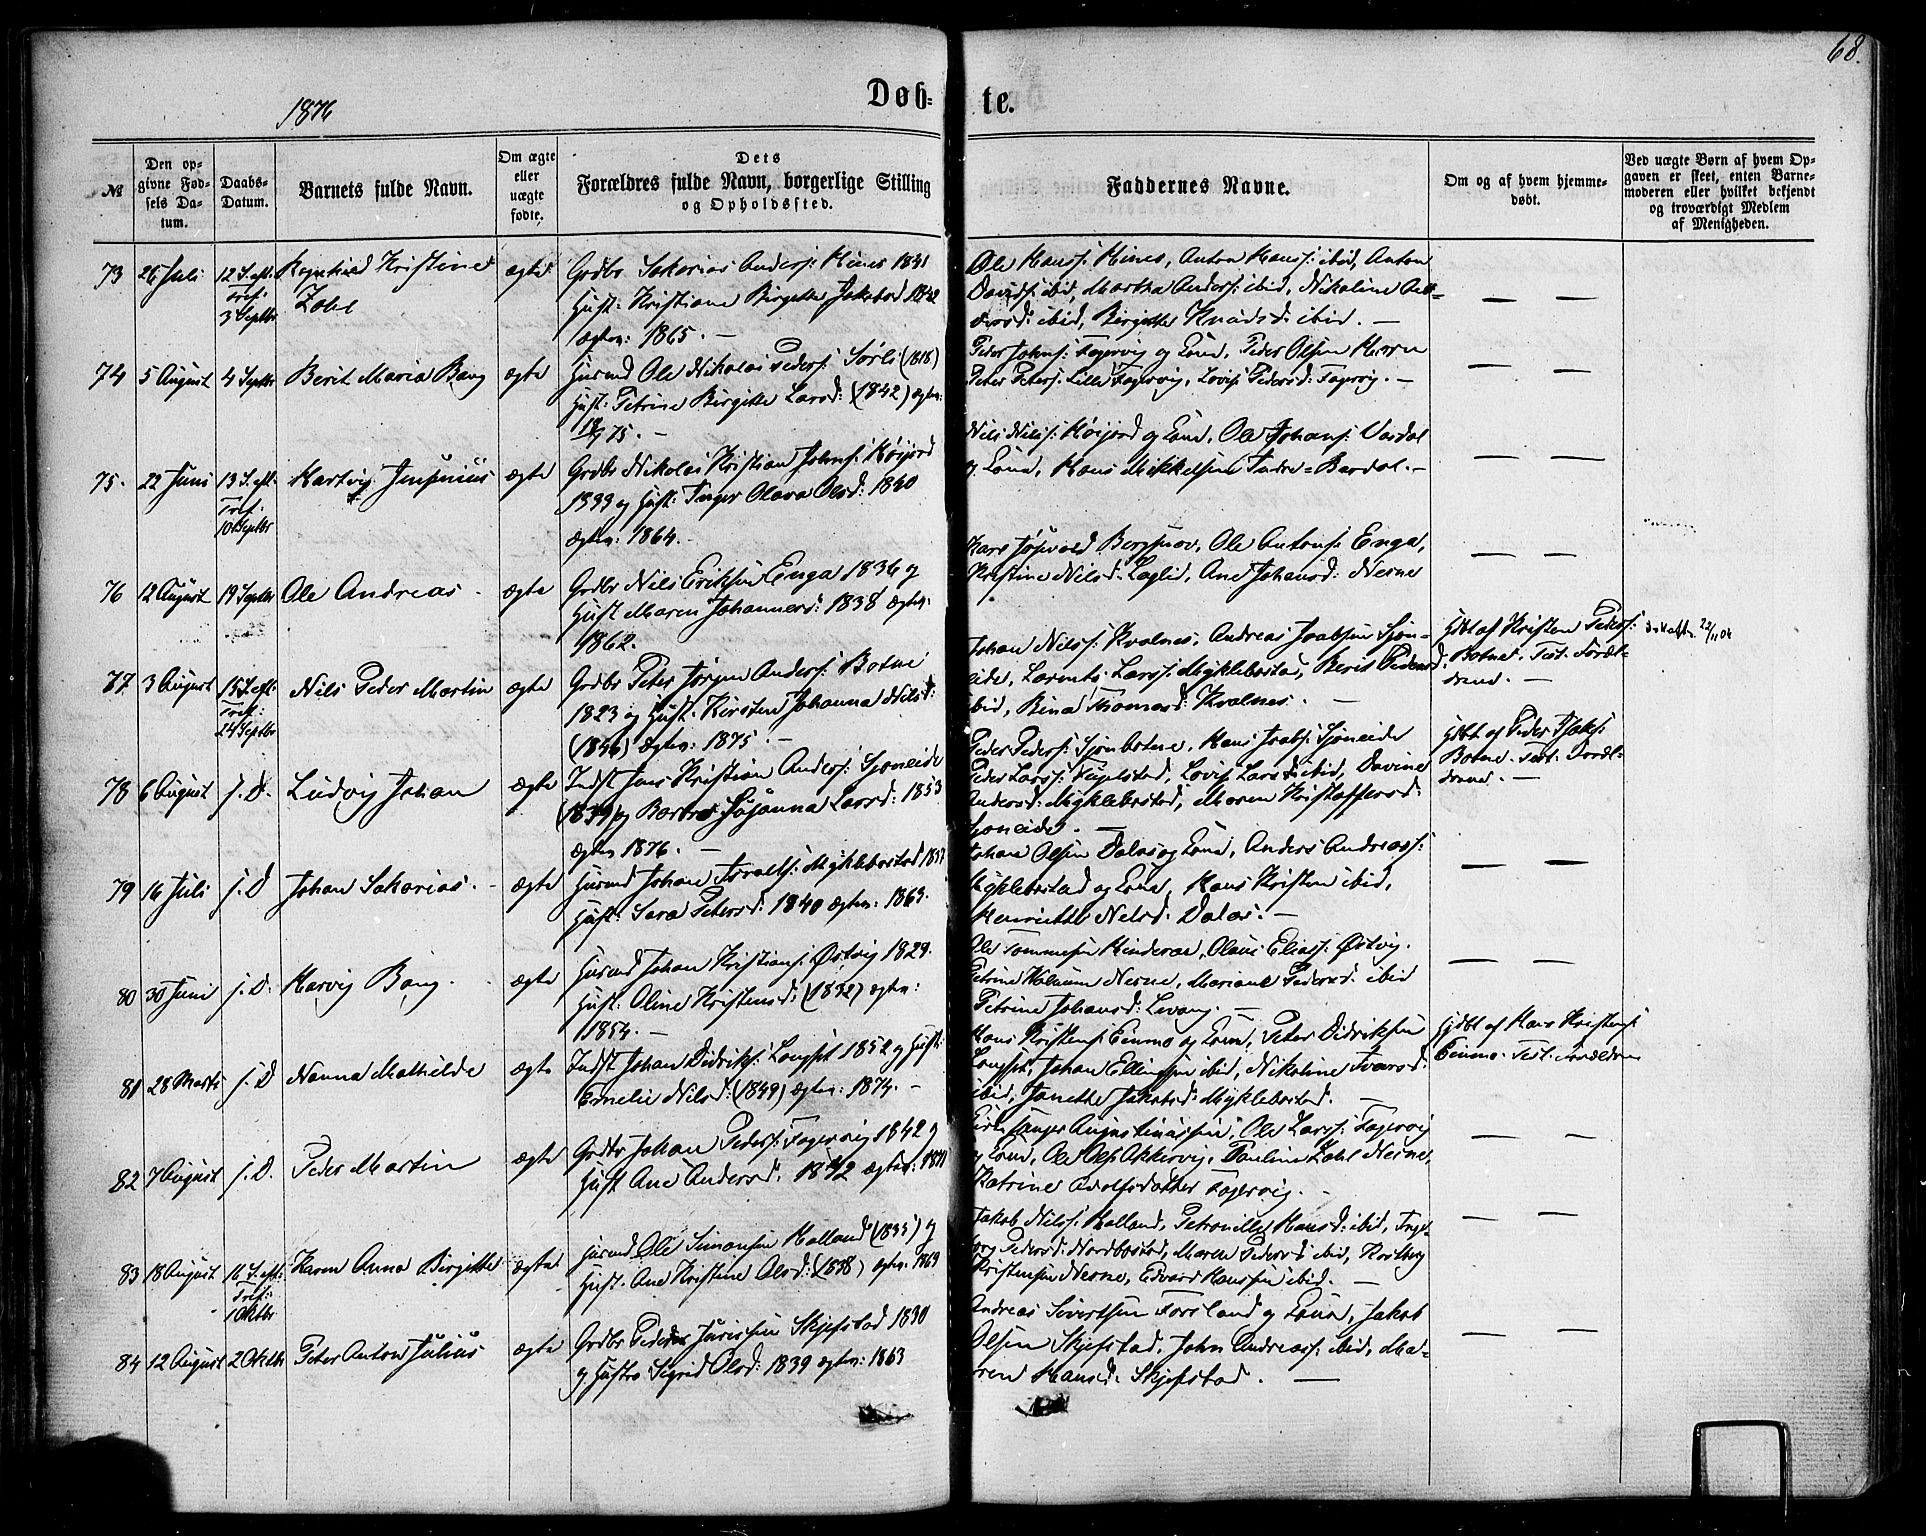 68.
1876
Døb-
te.
№
Den op-
givne Fød-
sels Da-
tum.
Daabs-
Datum.
Barnets fulde Navn.
Om ægte
eller
uægte
fødte.
Dets
Forældres fulde Navn, borgerlige Stilling
og Opholdssted.
Faddernes Navne.
Om og af hvem hjemme-
døbt.
Ved uægte Børn af hvem Op-
gaven er skeet, enten Barne-
moderen eller hvilket bekjendt
og troværdigt Medlem
af Menigheden.
73 26 Juli 12 S. eft. Tref: 3 Septbr
Ragnhild Kristine
Zahl
ægte
Grdbr Sakarias Anders: Hines 1841
Hust: Kristiane Birgitte Jakobsd 1842
ægtev: 1865. —
Ole Hanss: Hines, Anton Hanss: ibid, Anton
Davids: ibid, Martha Anders: ibid, Nikoline An-
dersd: ibid, Birgitte Knudsd: ibid. —
— —
74 5 August 4 Septbr
Berit Maria Bang
ægte
Husmd Ole Nikolai Peders: Sørli (1818)
Hust: Petrine Birgitte Larsd: (1842) ægtev:
75. —
Peder Johns: Fagervig og Kone, Peder Olsen
Peter Peters: Lille Fagervig, Lovise Pedersd: Fagervig. —
— —
75. 22 Juni 13 S. eft. Tref. 10 Septbr
Hartvig Jensenius
ægte
Grdbr Nikolai Kristian Johns: Høijord
1833 og Hust: Inger Olava Olsd: 1840
ægtev: 1864. —
Nils Nils: Høijord og Kone, Ole Johans: Vasdal
og Kone, Hans Mikkelsen Indre-Bardal. —
— —
76 12 August 19 Septbr
Ole Andreas
ægte
Grdbr Nils Eriksen Enga 1836 og
Hust Maren Johannesd: 1838 ægtev:
1862.
Ole Antons: Enga,
Kristine Nilsd: Laglid, Ane Johansd: Nesne
— —
77 3 August 15 S. eft: Tref: 24 Septbr
Nils Peder Martin
ægte
Grdbr Peter Jørgen Anders: Botne
1823 og Hust. Kirsten Johanna Nilsd:
(1846) ægtev: 1875. —
Johan Nils: Kvalnes, Andreas Joabsen Sjon-
eide, Larents Lars: Myklebostad, Berit Pedersd.
ibid, Bina Thomasd: Kvalnes. —
Hdbt af Kristen Peders:
Botne. Test. Foræl-
drene. —
22/11 04
78 6 August s. D.
Ludvig Johan
ægte
Indst Jens Kristian Anders: Sjoneide
(1839) og Barbro Susanna Larsd: 1853
ægtev 1876. —
Peder Peders: Sjonbotne, Hans Joabs: Sjoneide
Peder Lars: Fuglstad, Lovise Larsd: ibid, Davine
Andersd: Myklebostad, Maren Kristoffersd:
Sjoneide. —
Hdbt af Peder Isaks:
Botne. Test. Foræl-
drene. —
79 16 Juli s. D
Johan Sakarias.
ægte
Husmd Johan Israels: Myklebostad 1837
Hust: Sara Petersd: 1840 ægtev: 1863.
Johan Olsen Dalos og Kone, Anders Andreas:
Myklebostad og Kone, Hans Kristen ibid,
Henriette Nilsd: Dalos. —
— —
80 30 Juni s. D.
Harvig Bang.
ægte
Husmd Johan Kristians: Østvig 1829.
Hust: Oline Kristensd: (1832) ægtev:
1854. —
Ole Tommesen Hinderaa, Olaus Elias: Østvig.
Petrine Nesne, Mariane Pedersd. ibid
Petrine Johansd: Levang. —
— —
81 28 Marts s. D
Nanna Mathilde
ægte
Indst Johan Didriks: Langset 1852 og Hust:
Emelie Nilsd: (1849) ægtev: 1874. —
Hans Kristens: Einmo og Kone, Peter Didriksen
Langset, Johan Ellingsen ibid, Nikoline Ivarsd:
ibid, Janette Jakobsd: Myklebostad. —
Hjdbt af Hans Kristens:
Einmo. Test. Forældrene
82 7 August s. D.
Peder Martin
ægte
Grdbr Johan Peders: Fagervig 1842 og
Hust Ane Andersd: 1842 ægtev: 1870
Kirkesanger Augustinussen, Ole Lars: Fagervig
og Kone, Ole Ols: Akkervig, Pauline Zahl Nesne,
Katrine Adolfsdatter Fagervig. —
— —
83 18 August 16 S. eft: Tref: 1 Oktbr
Karen Anna Birgitte
ægte
Husmd Ole Simonsen Halland (1835) og
Hust: Ane Kristine Olsd: (1838) ægtev: 1869
Jakob Nils: Halland, Petronille Hansd: ibid, Inge-
borg Pedersd: Nordbostad, Maren Pedersd ibid,
Kristensen Nesne, Edvard Hanssen ibid. —
— —
84 12 August 2 Oktbr
Peter Anton Julius
ægte
Grdbr Peder Jurissen Skjefstad 1830
og Hustro Sigrid Olsd: 1839 ægtev: 1863
Andreas Sivertsen Forsland og Kone, Jakob
Olsen Skjefstad, John Andreas: ibid, Ma-
ren Hansd: Skjefstad. —
— —